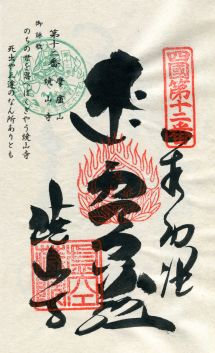 四國第十二番
奉納経
虚空蔵
焼山寺
第十二番 摩廬山 焼山寺
御詠歌
のちの世を思へばくぎやう焼山寺
死出や三途のなん所ありとも